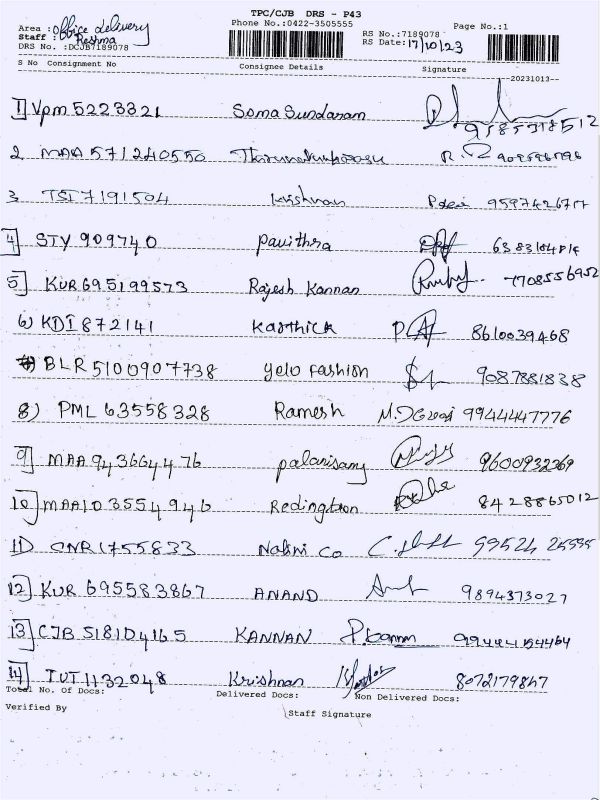 TPC/CJB DRS - P43
Phone No.:0422-3505555
Page No.:1
Area : Office delivery
Staff : Reshma
DRS No. :DCJB7189078
RS No.:7189078
RS Date: 17/10/23
S No Consignment No Consignee Details Signature
20231013
1 Vpm 5223321 Soma Sundaram
2. MAA 571240550
3 TST 7191504 krishnan
4 STY 909740 pavithra
5 KUR 695199573 Rajesh Kannan 7708556952
6) KDI 872141 Karthick 8610039468
BLR 5100907738 yelo fashion 9087881838
8) PML 63558328 Ramesh 9944447776
9 MAA 943664476 palanisamy 9600932269
10 MAA103554946 Redington 8428865012
11) CNR1755833 Nalini co
12 KUR 695583867 ANAND 9894373027
13 CJB 518104165 KANNAN P. Kannan
14 TUT 1132048 Krishnan 8072179847
Total No. Of Docs: Delivered Docs: Non Delivered Docs:
Verified By
Staff Signature